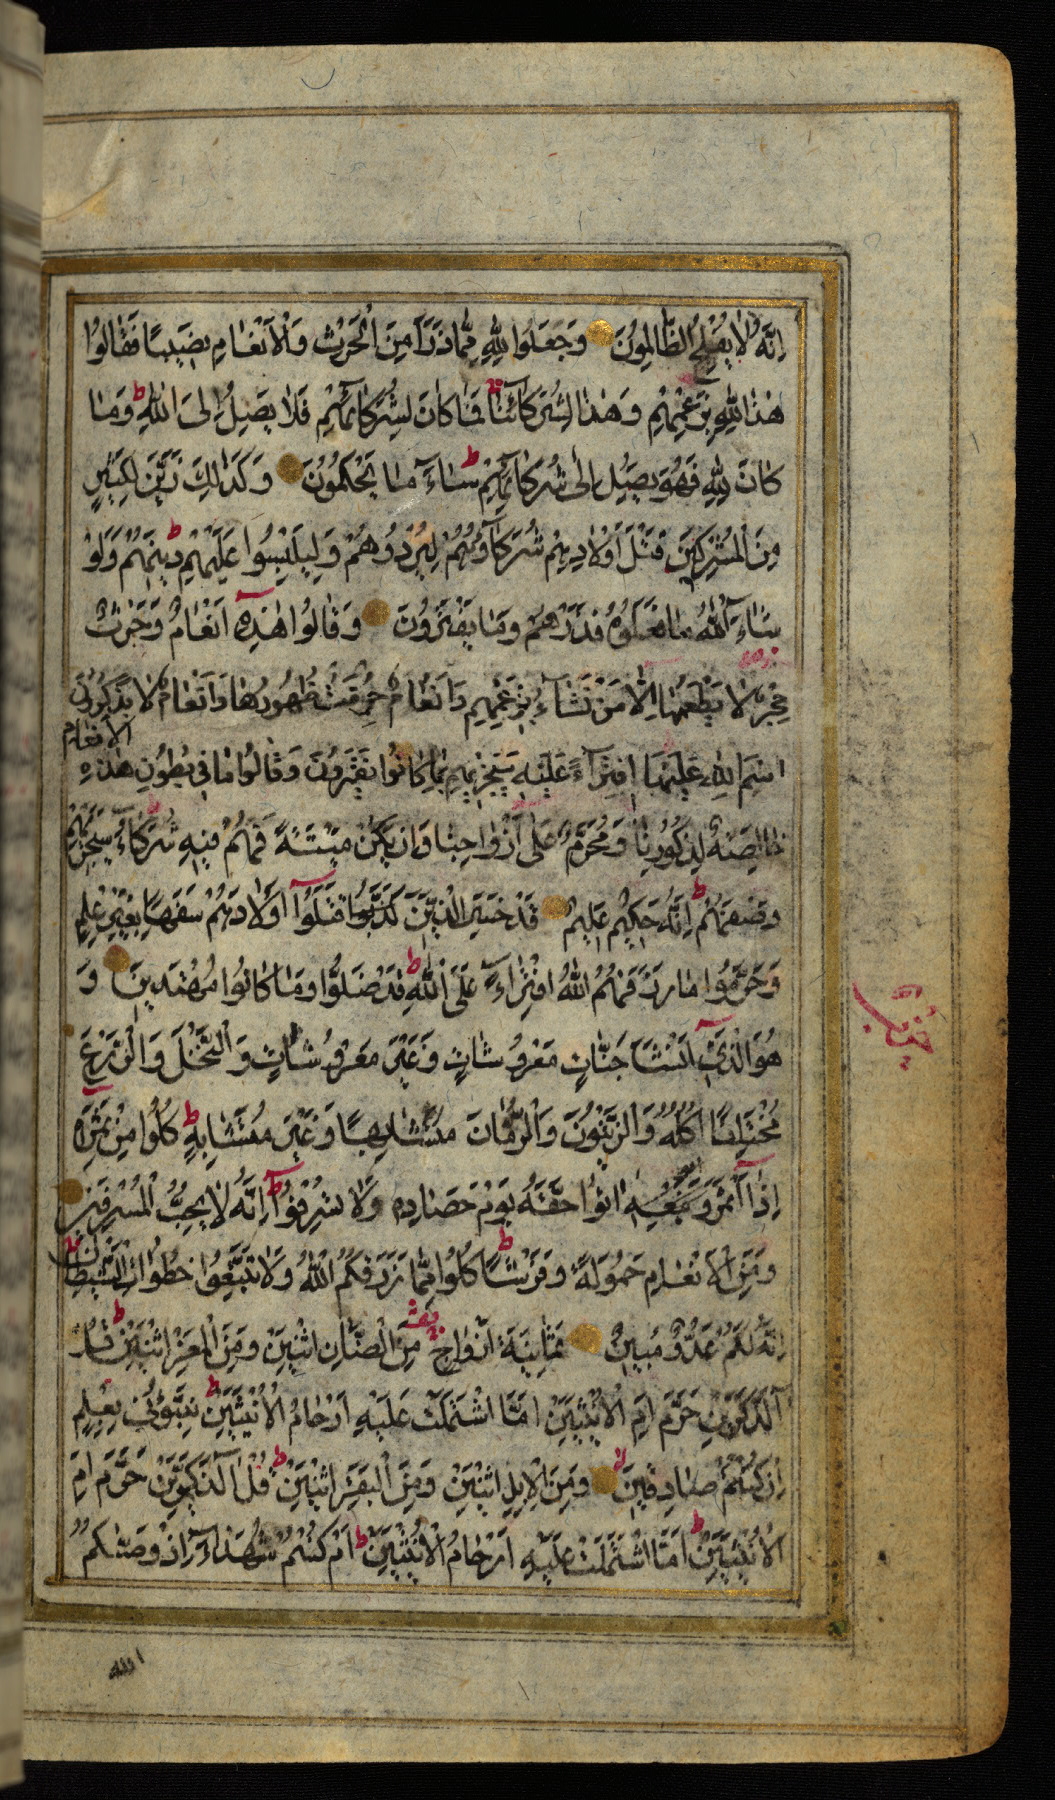 اِنَّهُ لَا يُفْلِحُ الظَّالِمُونَ وَجَعَلُوا لِلّٰهِ مِمَّا ذَرَاَ مِنَ الْحَرْثِ وَالْاَنْعَامِ نَصِيبًا فَقَالُوا
هٰذَا لِلّٰهِ بِزَعْمِهِمْ وَهٰذَا لِشُرَكَائِنَا ط فَمَا كَانَ لِشُرَكَائِهِمْ فَلَا يَصِلُ اِلَى اللّٰهِ ط وَمَا
كَانَ لِلّٰهِ فَهُوَ يَصِلُ اِلٰى شُرَكَائِهِمْ ط سَاءَ مَا يَحْكُمُونَ وَكَذٰلِكَ زَيَّنَ لِكَثِيرٍ
مِنَ الْمُشْرِكِينَ قَتْلَ اَوْلَادِهِمْ شُرَكَاؤُهُمْ لِيُرْدُوهُمْ وَلِيَلْبِسُوا عَلَيْهِمْ دِينَهُمْ ط وَلَوْ
شَاءَ اللّٰهُ مَا فَعَلُوهُ فَذَرْهُمْ وَمَا يَفْتَرُونَ وَقَالُوا هٰذِهِ اَنْعَامٌ وَحَرْثٌ
حِجْرٌ لَا يَطْعَمُهَا اِلَّا مَنْ نَشَاءُ بِزَعْمِهِمْ وَاَنْعَامٌ حُرِّمَتْ ظُهُورُهَا وَاَنْعَامٌ لَا يَذْكُرُونَ
اسْمَ اللّٰهِ عَلَيْهَا افْتِرَاءً عَلَيْهِ سَيَجْزِيهِمْ بِمَا كَانُوا يَفْتَرُونَ وَقَالُوا مَا فِي بُطُونِ هٰذِهِ الانعام
خَالِصَةٌ لِذُكُورِنَا وَمُحَرَّمٌ عَلٰى اَزْوَاجِنَا وَاِنْ يَكُنْ مَيْتَةً فَهُمْ فِيهِ شُرَكَاءُ سَيَجْزِيهِمْ
وَصْفَهُمْ ط اِنَّهُ حَكِيمٌ عَلِيمٌ قَدْ خَسِرَ الَّذِينَ قَتَلُوا اَوْلَادَهُمْ سَفَهًا بِغَيْرِ عِلْمٍ
وَحَرَّمُوا مَا رَزَقَهُمُ اللّٰهُ افْتِرَاءً عَلَى اللّٰهِ ط قَدْ ضَلُّوا وَمَا كَانُوا مُهْتَدِينَ وَ
هُوَ الَّذِي اَنْشَاَ جَنَّاتٍ مَعْرُوشَاتٍ وَغَيْرَ مَعْرُوشَاتٍ وَالنَّخْلَ وَالزَّرْعَ
مُخْتَلِفًا اُكُلُهُ وَالزَّيْتُونَ وَالرُّمَّانَ مُتَشَابِهًا وَغَيْرَ مُتَشَابِهٍ ط كُلُوا مِنْ ثَمَرِهِ
اِذَا اَثْمَرَ وَاٰتُوا حَقَّهُ يَوْمَ حَصَادِهِ وَلَا تُسْرِفُوا ط اِنَّهُ لَا يُحِبُّ الْمُسْرِفِينَ
وَمِنَ الْاَنْعَامِ حَمُولَةً وَفَرْشًا ط كُلُوا مِمَّا رَزَقَكُمُ اللّٰهُ وَلَا تَتَّبِعُوا خُطُوَاتِ الشَّيْطَانِ ط
اِنَّهُ لَكُمْ عَدُوٌّ مُبِينٌ ثَمَانِيَةَ اَزْوَاجٍ مِنَ الضَّاْنِ اثْنَيْنِ وَمِنَ الْمَعْزِ اثْنَيْنِ ط قُلْ
آلذَّكَرَيْنِ حَرَّمَ اَمِ الْاُنْثَيَيْنِ اَمَّا اشْتَمَلَتْ عَلَيْهِ اَرْحَامُ الْاُنْثَيَيْنِ ط نَبِّئُونِي بِعِلْمٍ
اِنْ كُنْتُمْ صَادِقِينَ وَمِنَ الْاِبِلِ اثْنَيْنِ وَمِنَ الْبَقَرِ اثْنَيْنِ ط قُلْ آلذَّكَرَيْنِ حَرَّمَ اَمِ
الْاُنْثَيَيْنِ ط اَمَّا اشْتَمَلَتْ عَلَيْهِ اَرْحَامُ الْاُنْثَيَيْنِ ط اَمْ كُنْتُمْ شُهَدَاءَ اِذْ وَصّٰكُمُ
حزب
الله